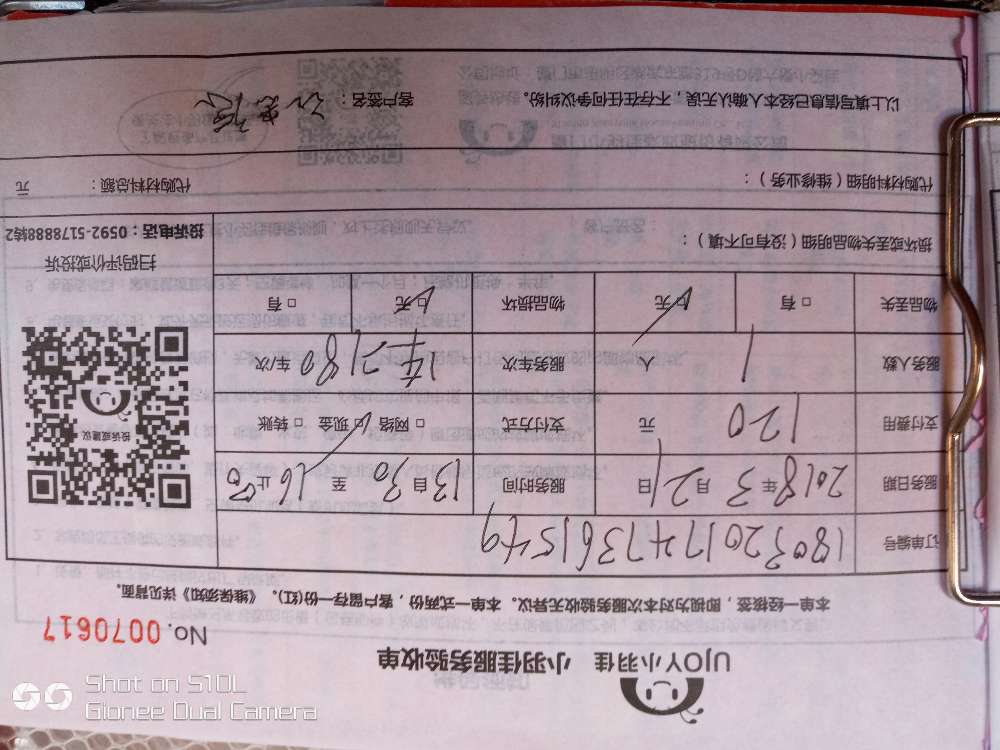 UJOY小羽佳 小羽佳服务验收单
No.0070617
本单一经接签，即视为对本次服务验收无异议。本单一式两份，客户留存一份(红)。《维保须知》详见背面。
订单编号 180320174736 1549
服务日期 2018 年 3 月 21 日 服务时间 13 自 30 至 16 止 30
支付费用 120 元 支付方式 □ 网络 □ 现金 □ 转账
服务人数 1 人 服务车次 1年2189 车/次
物品丢失 □ 有 □ 无 物品损坏 □ 无 □ 有
损坏或丢失物品明细（没有可不填）：
投诉或建议
扫码评价或投诉
投诉电话：0592-5178888转2
代购材料明细（维修业务）： 代购材料总额： 元
以上填写信息已经本人确认无误，不存在任何争议纠纷。 客户签名：
Shot on S10L
Gionee Dual Camera